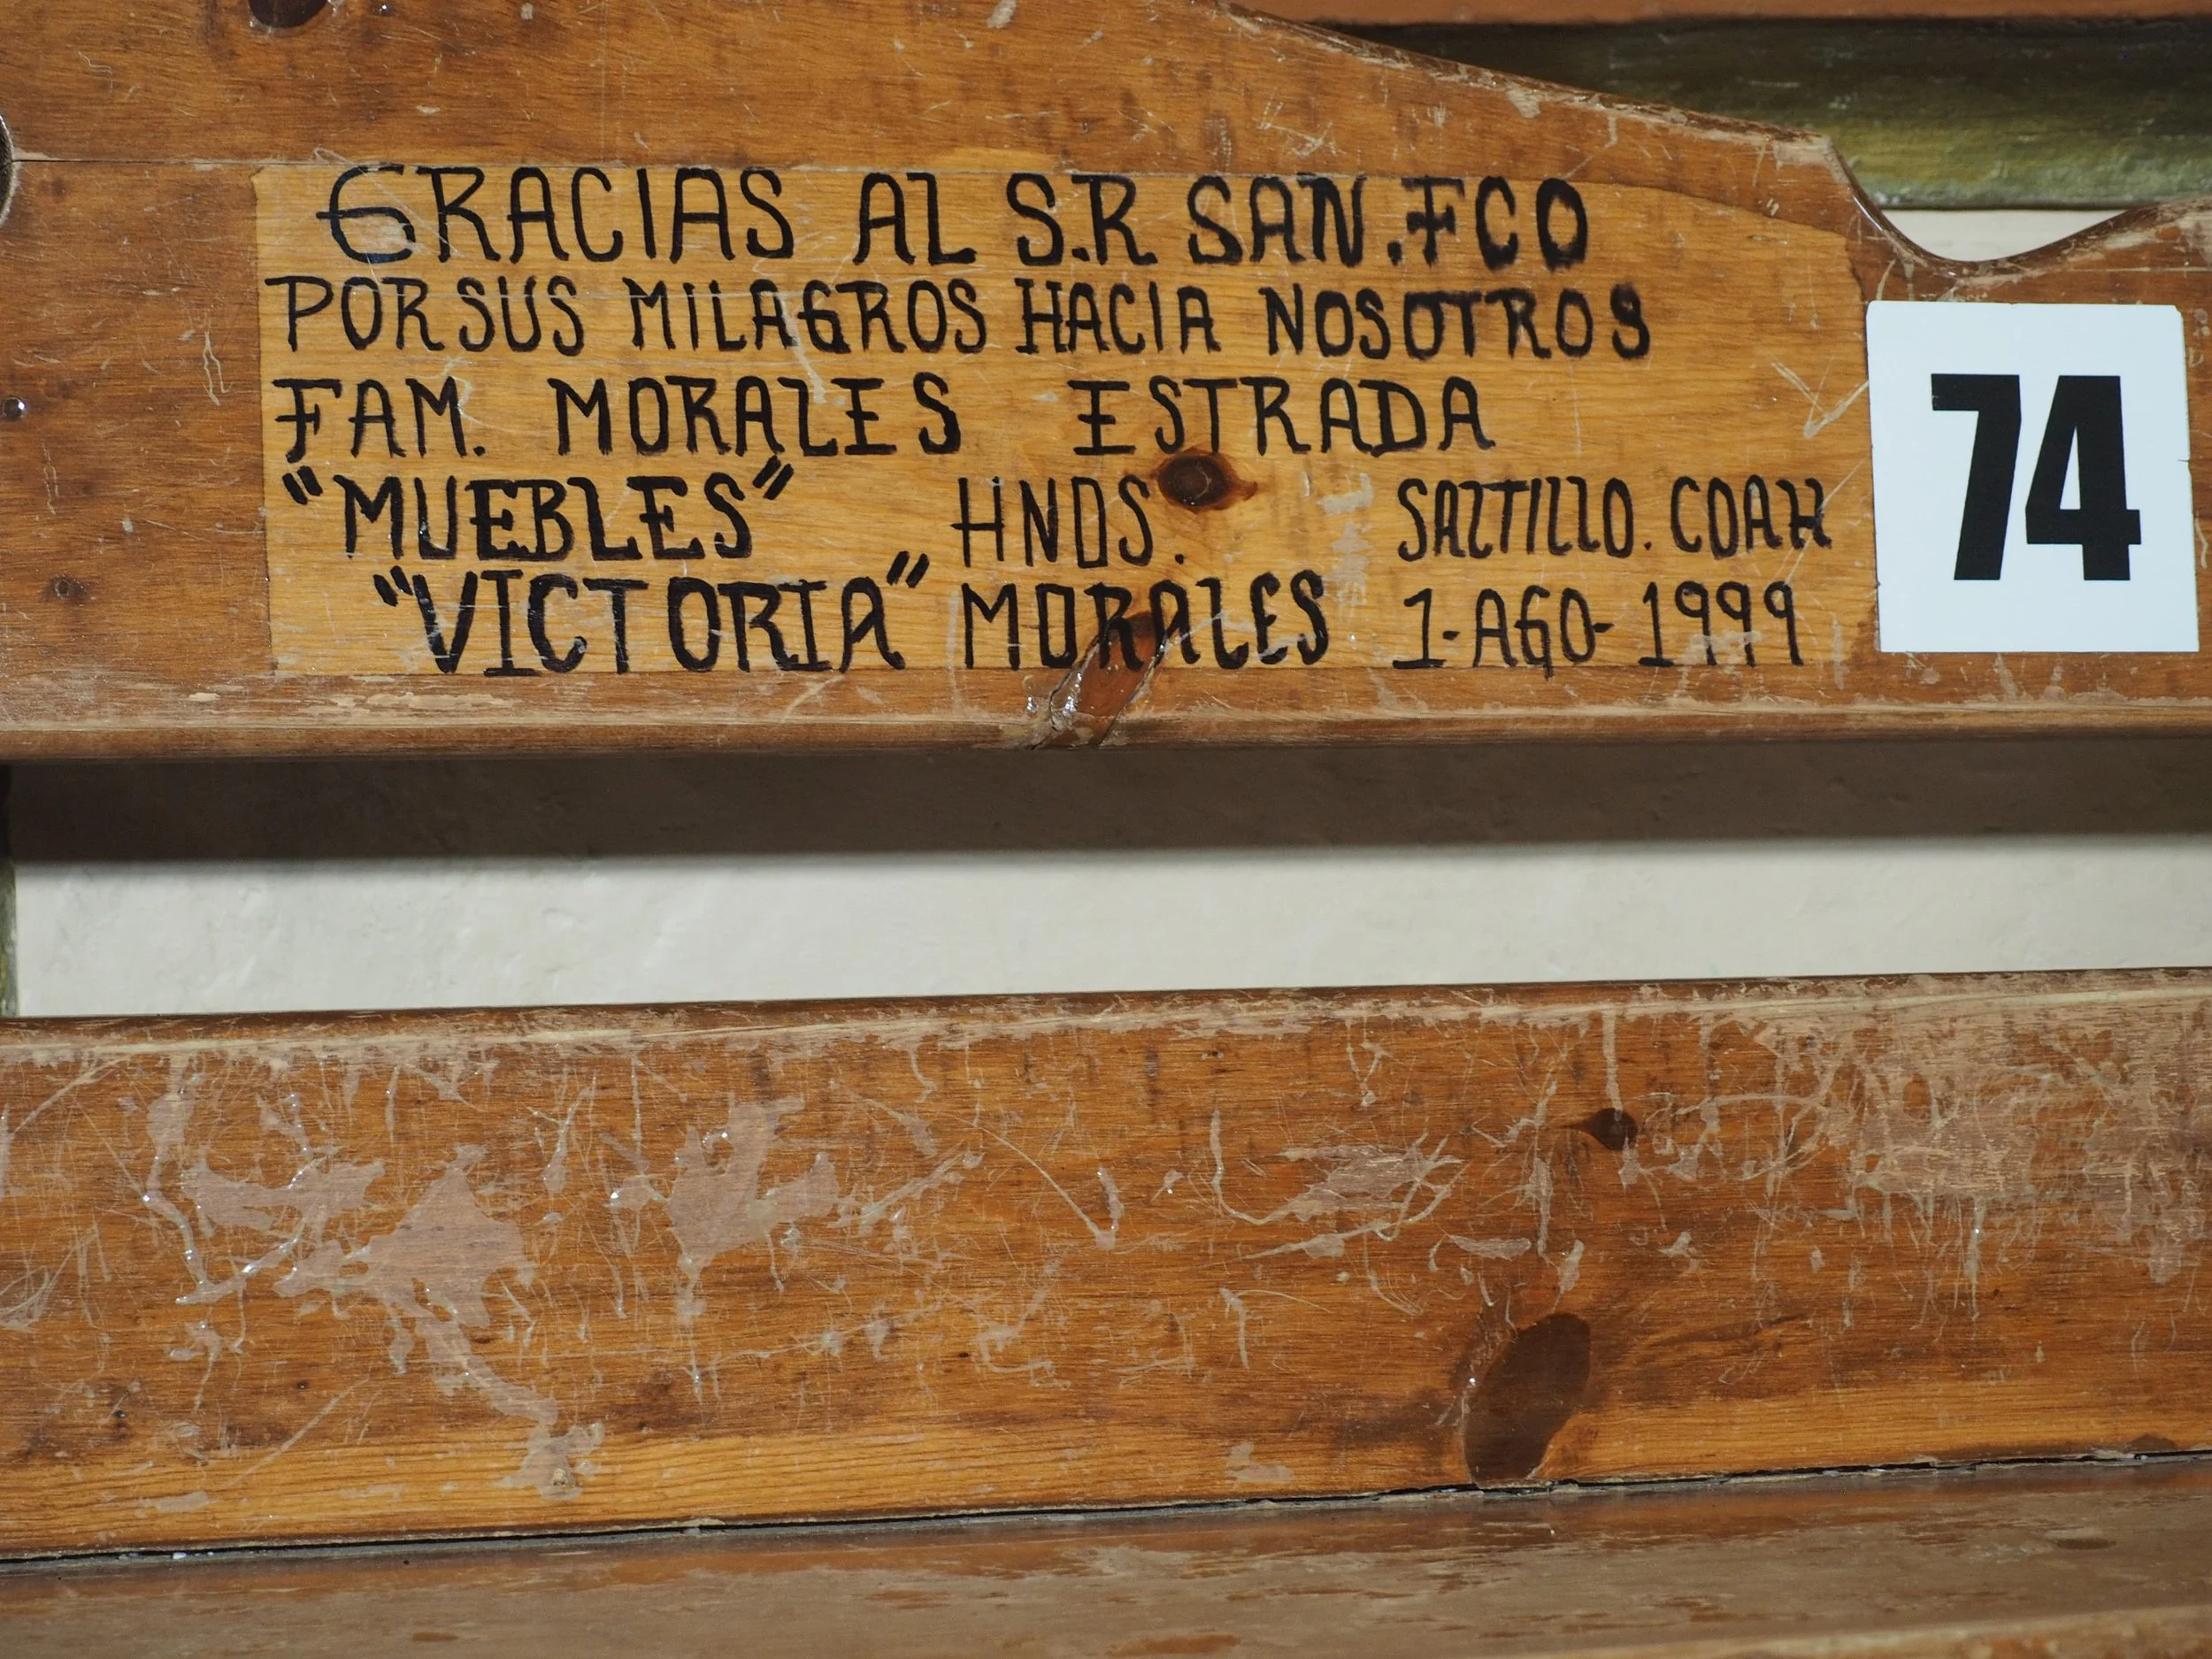 GRACIAS AL S.R. SAN.FCO
POR SUS MILAGROS HACIA NOSOTROS
FAM. MORALES ESTRADA
"MUEBLES" HNOS. SALTILLO. COAH
"VICTORIA" MORALES 1-AGO-1999
74